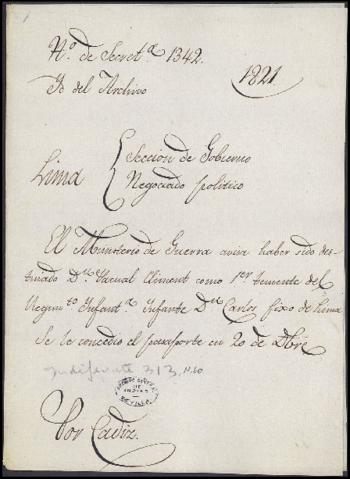 N.º de Secret.ª 1342.
Yd del Archivo
1821.
Lima
Seccion de Gobierno
Negociado politico
El Ministerio de Guerra avisa haber sido des-
tinado D.n Pascual Climent como 1.er teniente del
Regim.to Infant.a Infante D.n Carlos fixo de Lima
Se le concedio el pasaporte en 20 de Dbre
Indiferente 313. N.
ARCHIVO GENERAL
DE
INDIAS
SEVILLA
Por Cadiz.